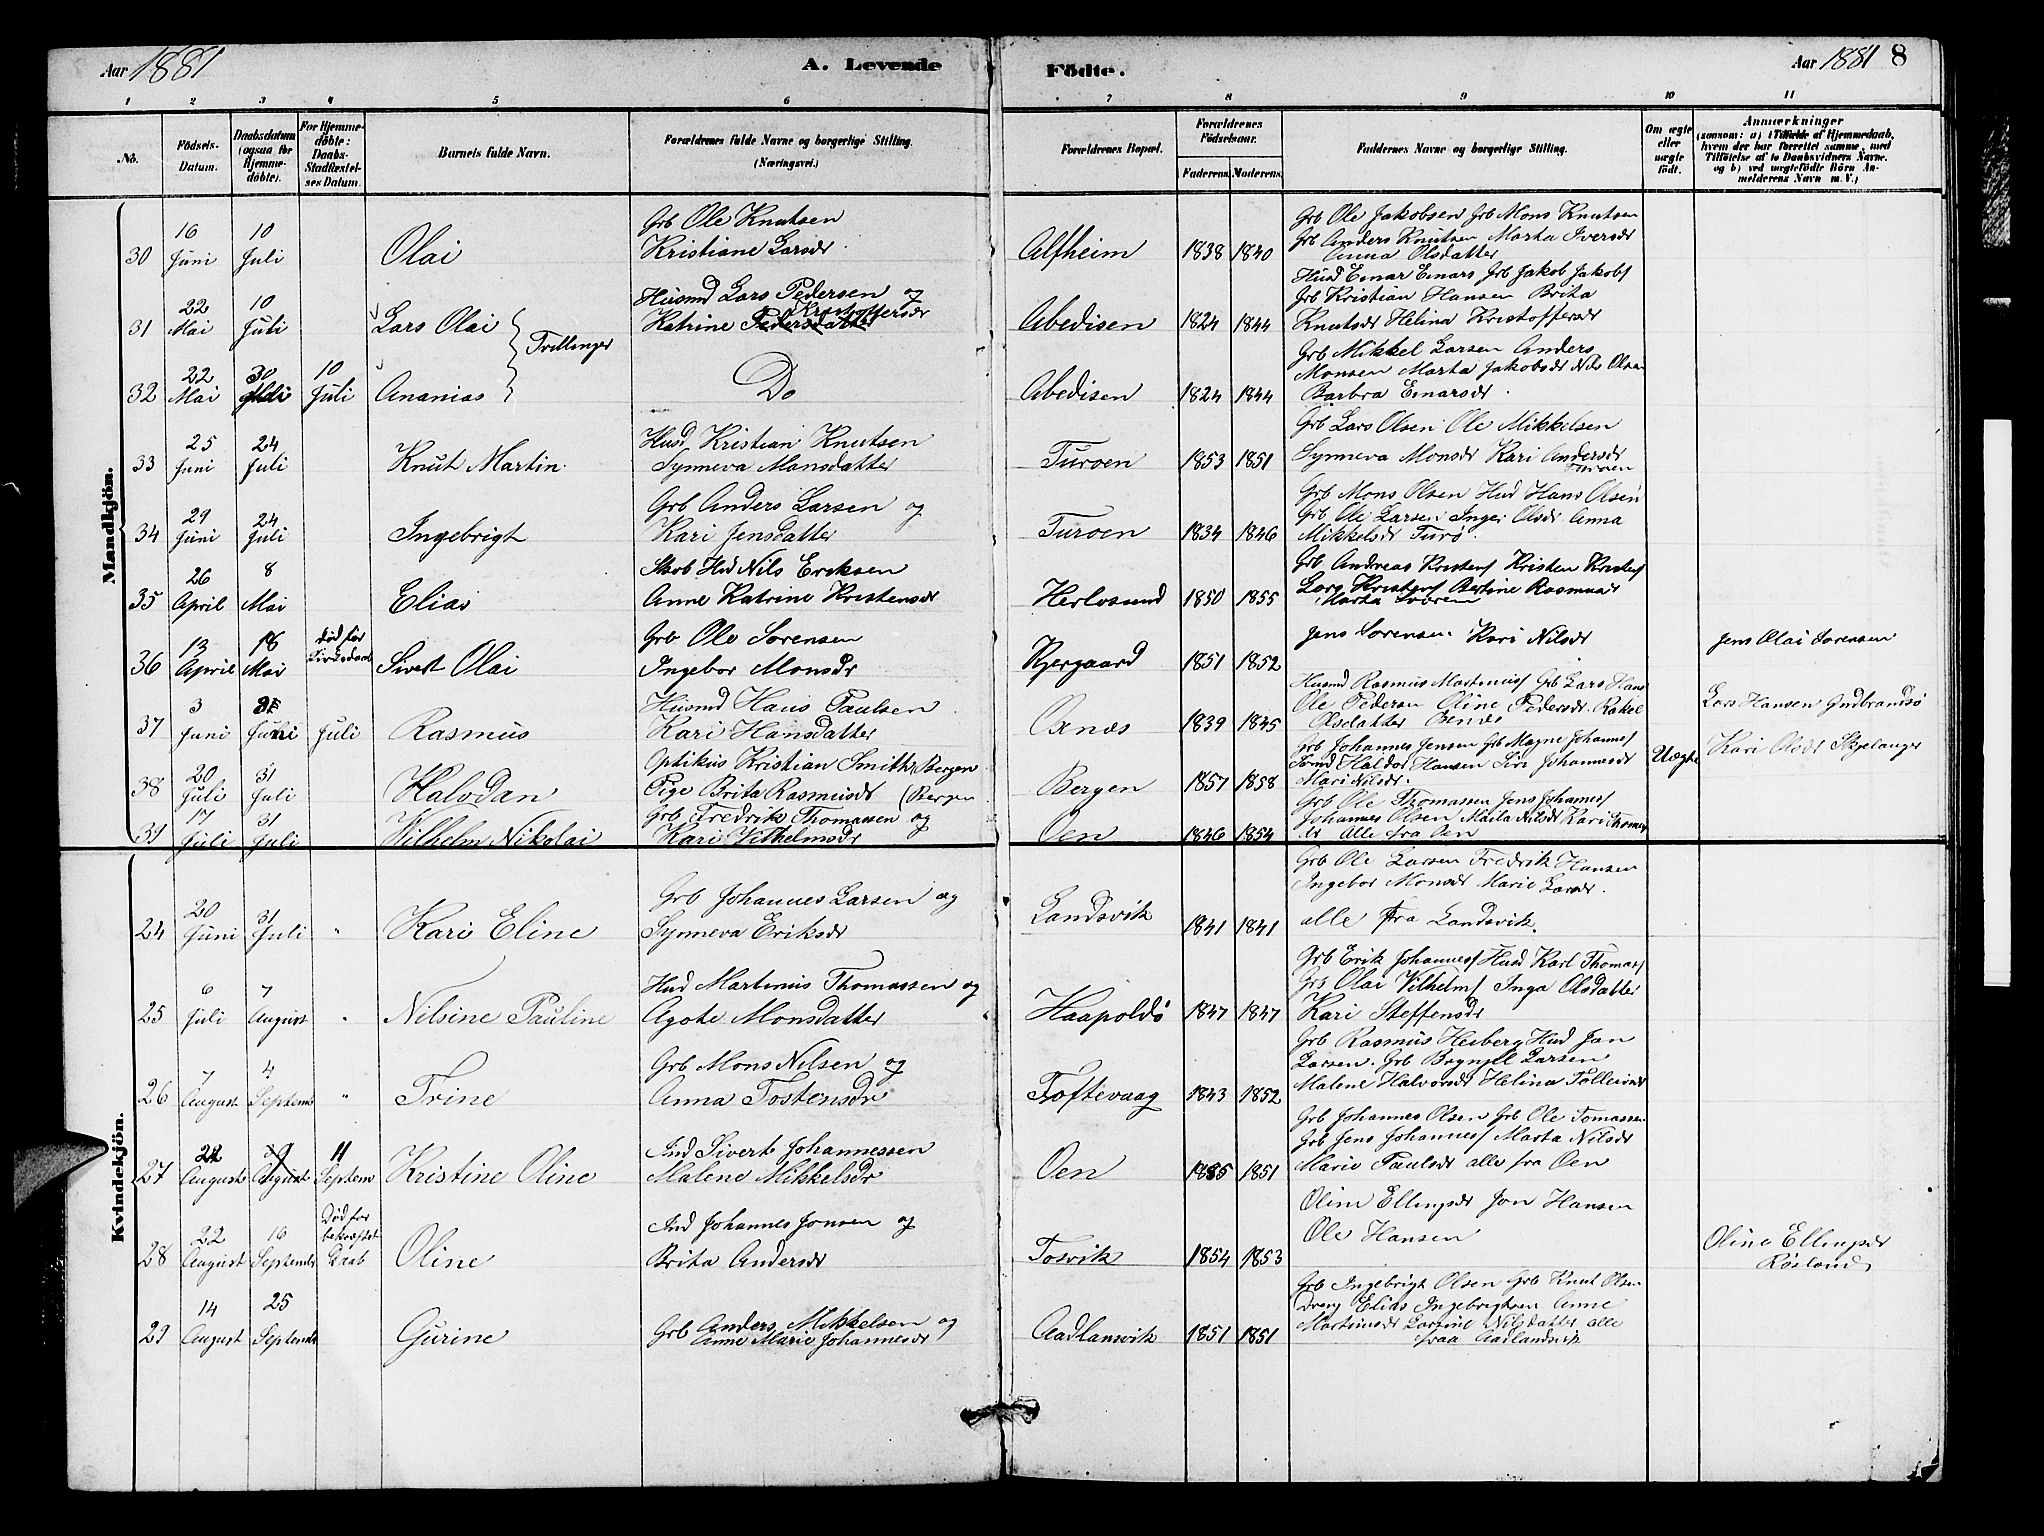 Aar 1881
A. Levende
Födte.
Aar 1881 8
1 2 3 4 5 6 7 8 9 10 11
No.
Födsels-Datum.
Daabsdatum (ogsaa for Hjemme-döbte).
For Hjemme-döbte: Daabs-Stadfæstel-ses Datum.
Barnets fulde Navn.
Forældrenes fulde Navne og borgerlige Stilling. (Næringsvei.)
Forældrenes Bopæl.
Forældrenes Födselsaar.
Faderens. Moderens.
Faddernes Navne og borgerlige Stilling.
Om ægte eller uægte födt.
Anmærkninger
(saasom: a) i Tilfælde af Hjemmedaab, hvem der har forrettet samme, med Tilföielse af to Daabsvidners Navne, og b) ved uægtefödte Börn An-melderens Navn m. V.)
Mandkjön.
30 16 Juni 10 Juli Olai
Grb Ole Knutsen
Kristiane Larsdr
Alfheim 1838 1840
Grb Ole Jakobsen Grb Mons Knutsen
Grb Anders Knutsen Marta Iversdr
Anna Olsdatter
31 22 Mai 10 Juli Lars Olai Tvillinger
Husmd Lars Pedersen og
Katrine Pedersdatter Kristoffersdr
Abedisen 1824 1844
Husd Einar Einars Grb Jakob Jakobs
Grb Kristian Hansen Brita
Knutsdr Helina Kristoffersdr
32 22 Mai 30 10 Juli Ananias
Do
Abedisen 1824 1844
Grb Mikkel Larsen Anders
Monsen Marta Jakobsdr Nils Olsen
Barbra Einarsdr
33 25 Juni 24 Juli Knut Martin
Husd Kristian Knutsen
Synneva Monsdatter
Turoen 1853 1851
Grb Lars Olsen Ole Mikkelsen
Synneva Monsdr Kari Andersdr
Turoen
34 29 Juni 24 Juli Ingebrigt
Grb Anders Larsen og
Kari Jensdatter
Turoen 1834 1846
Grb Mons Olsen Hud Hans Olsen
Grb Ole Larsen Inger Olsdr Anna
Mikkelsdr Turø
35 26 April 8 Mai Elias
Hud Nils Eriksen
Anne Katrine Kristensdr
Herlosund 1850 1855
Grb Andreas Kristens Kristen Kristens
Lars Kristens Bertine Rasmusdr
Marta
36 13 April 16 Mai død for Kirkedaab Sivert Olai
Grb Ole Sorensen
Ingebor Monsdr
Kjergaard 1851 1852
Jens Sorensen Kari Nilsdr
Jens Olai Sorensen
37 3 Juni Juli Rasmus
Husmd Hans Paulsen
Kari Hansdatter
Oxnæs 1839 1845
Husmd Rasmus Martinus Grb Lars Hans
Ole Pedersen Oline Pedersdr Rakel
Olsdatter
Lars Hansen Gudbrandsø
38 20 Juli 31 Juli Halvdan
Optikus Kristian Smith Bergen
Pige Brita Rasmusdr (Bergen
Bergen 1857 1858
Grb Johannes Jensen Grb Magne Johannes
Haldor Hansen Siri Johannesdr
Mari Nilsdr
Uægte
Kari Olsdr Skjelanger
39 17 Juli 31 Juli Wilhelm Nikolai
Grb Fredrik Thomassen og
Kari Vilhelmsdr
Oen 1846 1854
Grb Ole Thomassen Jens Johannes
Johannes Olsen Marta Nilsdr Kari Thomas
dr alle fra Oen
Kvindekjön.
24 20 Juni 31 Juli " Kari Eline
Grb Johannes Larsen og
Synneva Eriksdr
Landsvik 1841 1841
Grb Ole Larsen Fredrik Hansen
Ingebor Monsdr Marie Larsdr
alle fra Landsvik.
25 6 Juli 7 August " Nilsine Pauline
Hud Martinus Thomassen og
Agote Monsdatter
Haapoldø 1847 1847
Grb Erik Johannes Husd Karl Thomas
Grb Olai Vilhelms Inga Olsdatter
Kari Steffensdr
26 7 August 4 Septemb " Trine
Grb Mons Nilsen og
Anna Tostensdr
Toftevaag 1843 1852
Grb Rasmus Heiberg Hud Jan
Larsen Grb Brynjel Larsen
Malene Halvorsdr Helina Tolleivsdr
27 22 August August 11 Septem Kristine Oline
Ind Sivert Johannessen
Malene Mikkelsdr
Oen 1855 1851
Grb Johannes Olsen Grb Ole Tomassen
Grb Jens Johannes Marta Nilsdr
Marie Paulsdr alle fra Oen
28 22 August 16 Septembr Død for bekræftet Daab Oline
Ind Johannes Jonsen og
Brita Andersdr
Tosvik 1854 1853
Oline Ellingsdr Jon Hansen
Ole Hansen
Oline Ellingsdr
Røsland
29 14 August 25 Septembr Gurine
Grb Anders Mikkelsen og
Anne Marie Johannesdr
Aadlansvik 1851 1851
Grb Ingebrigt Olsen Grb Knut Olsen
Dreng Elias Ingebrigtsen Anne
Martinusdr Larsine Nilsdatter alle
fraa Aadlandsvik